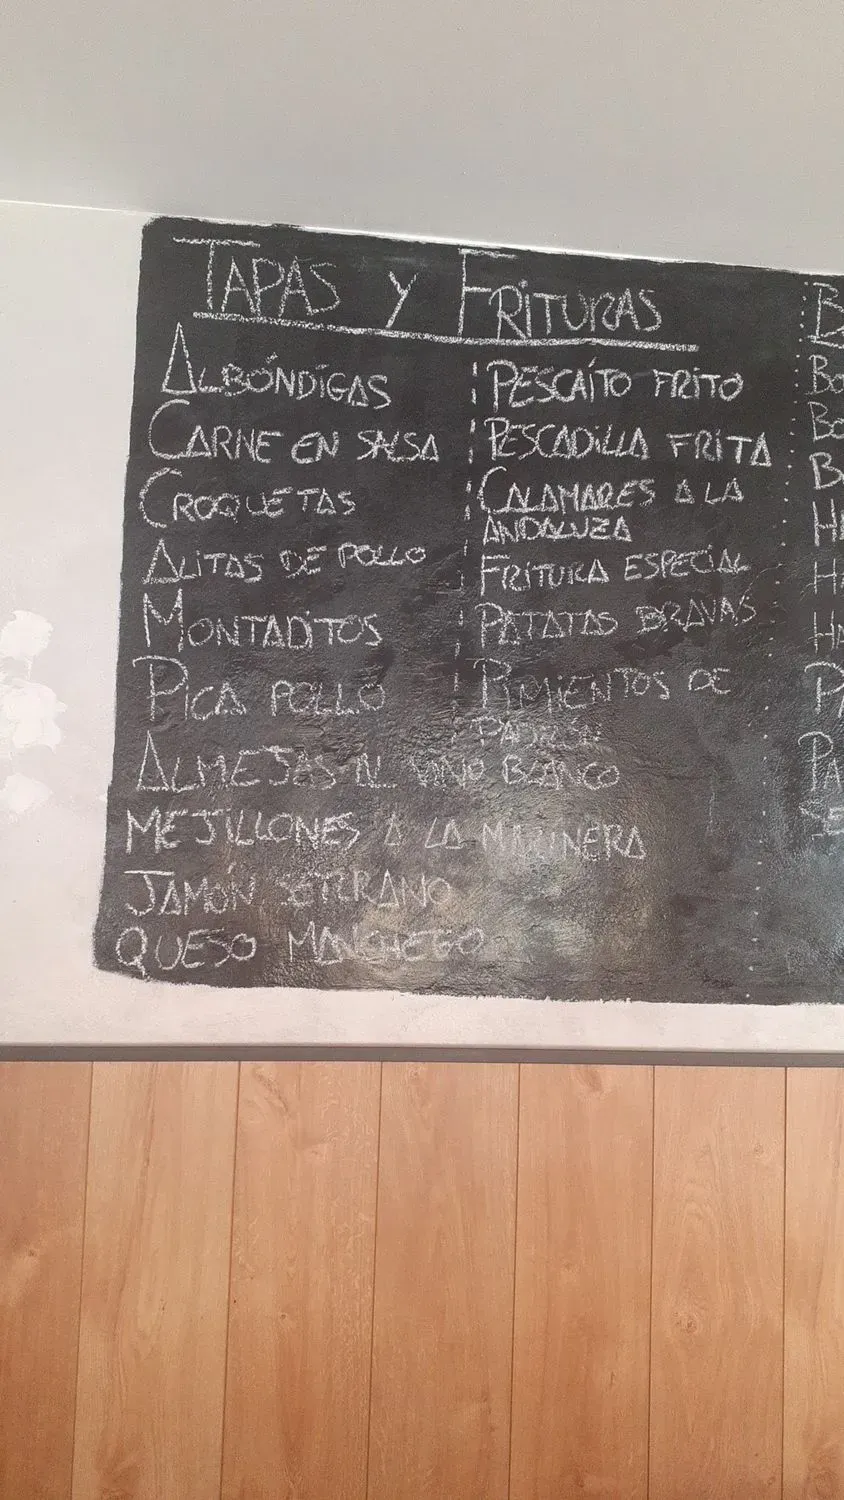 TAPAS Y FRITURAS
ALBÓNDIGAS
CARNE EN SALSA
CROQUETAS
ALITAS DE POLLO
MONTADITOS
PICA POLLO
ALMEJAS AL VINO BLANCO
MEJILLONES A LA MARINERA
JAMÓN SERRANO
QUESO MANCHEGO
PESCAÍTO FRITO
PESCADILLA FRITA
CALAMARES A LA
ANDALUZA
FRITURA ESPECIAL
PATATAS BRAVAS
PIMIENTOS DE
PADRÓN
B
BO
BO
B
HA
HA
HA
PA
PA